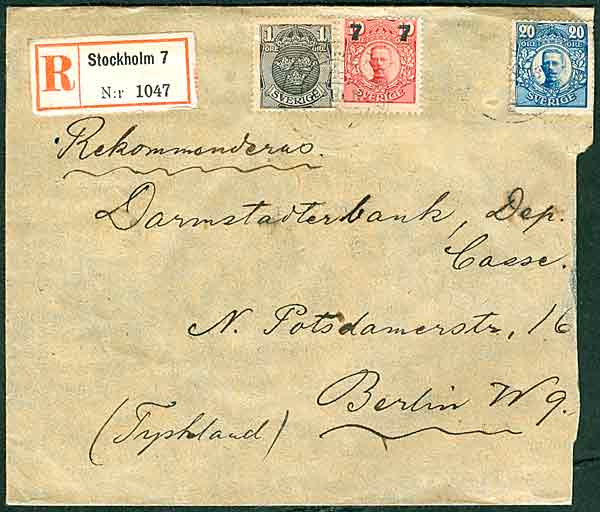 R Stockholm 7
N:r 1047
1 ÖRE ÖRE SVERIGE
7 7 SVERIGE
20 20 ÖRE ÖRE SVERIGE
Rekommenderas.
Darmstadterbank, Dep.
Casse.
N. Potsdamerstr, 16
Berlin W 9.
(Tyskland)